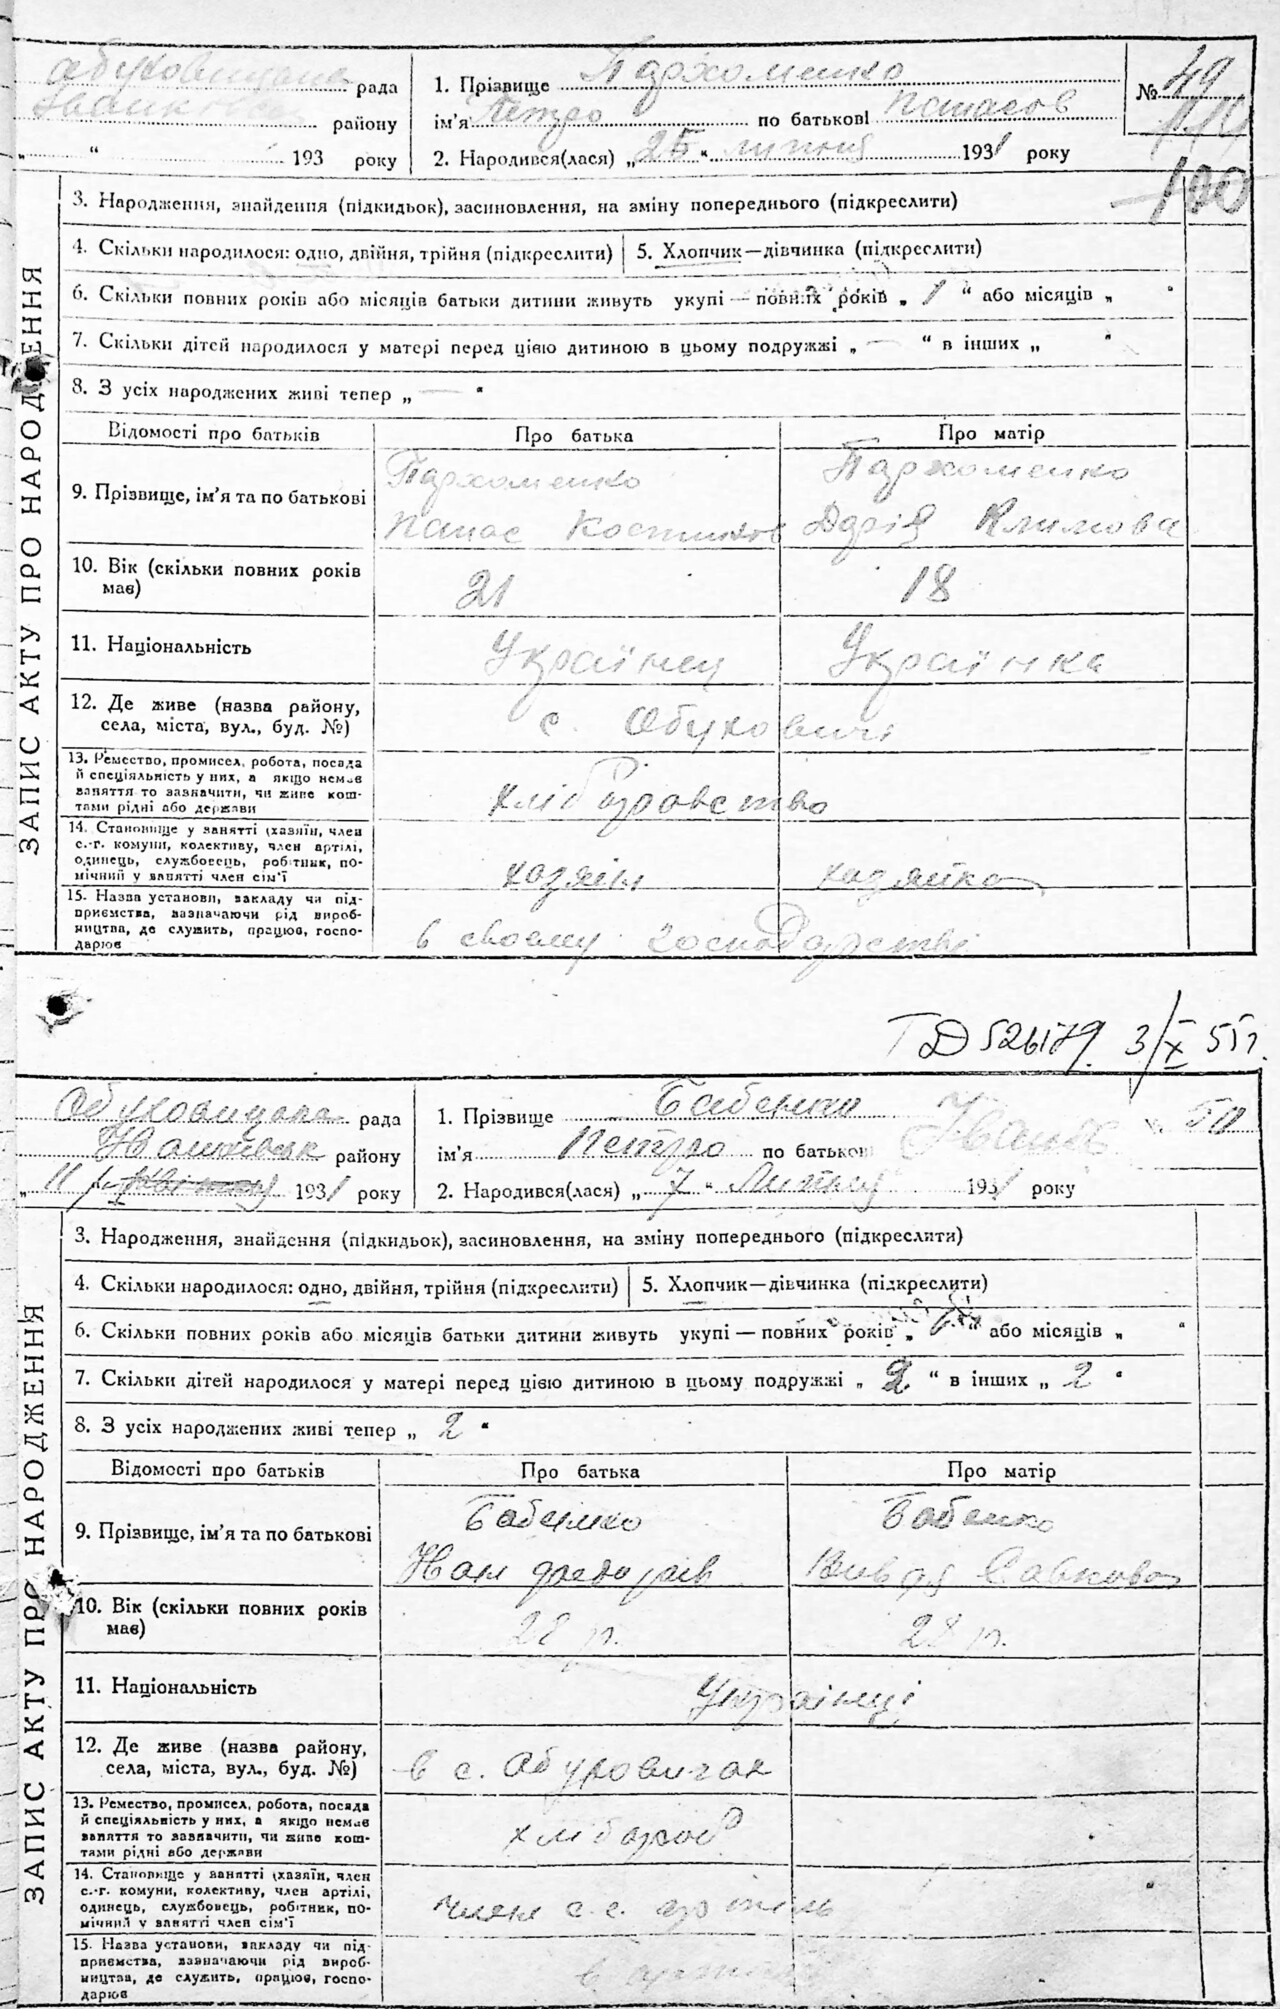 ЗАПИС АКТУ ПРО НАРОДЖЕННЯ
Обуховицька рада
району
„ “ 193 року
1. Прізвище Пархоменко
ім’я Петро по батькові Панасов
2. Народився(лася) „ 25 “ липня 1931 року
№ 49
100
3. Народження, знайдення (підкидьок), засиновлення, на зміну попереднього (підкреслити)
4. Скільки народилося: одно, двійня, трійня (підкреслити) 5. Хлопчик—дівчинка (підкреслити)
6. Скільки повних років або місяців батьки дитини живуть укупі — повних років „ 1 “ або місяців „ “
7. Скільки дітей народилося у матері перед цією дитиною в цьому подружжі „ — “ в інших „ “
8. З усіх народжених живі тепер „ — “
Відомості про батьків Про батька Про матір
9. Прізвище, ім’я та по батькові
Пархоменко
Панас
Пархоменко
Дарія Климова
10. Вік (скільки повних років
має)
21 18
11. Національність Українец Українка
12. Де живе (назва району,
села, міста, вул., буд. №)
с. Обуховичі
13. Ремество, промисел, робота, посада
й спеціяльність у них, а якщо немає
заняття то зазначити, чи живе кош-
тами рідні або держави
хліборобство
14. Становище у занятті (хазяїн, член
с.-г. комуни, колективу, член артілі,
одинець, службовець, робітник, по-
мічний у занятті член сім’ї
хазяїн хазяйка
15. Назва установи, закладу чи під-
приємства, зазначаючи рід вироб-
ництва, де служить, працює, госпо-
дарює
в своему господарстві
ТД 526179 3/X 55 г.
ЗАПИС АКТУ ПРО НАРОДЖЕННЯ
Обуховицька рада
району
„ 11 1931 року
1. Прізвище Бабенко
ім’я Петро по батькові Іванів
2. Народився(лася) „ 7 “ Липня 1931 року
№ 50
3. Народження, знайдення (підкидьок), засиновлення, на зміну попереднього (підкреслити)
4. Скільки народилося: одно, двійня, трійня (підкреслити) 5. Хлопчик—дівчинка (підкреслити)
6. Скільки повних років або місяців батьки дитини живуть укупі — повних років „ “ або місяців „ “
7. Скільки дітей народилося у матері перед цією дитиною в цьому подружжі „ 2 “ в інших „ 2 “
8. З усіх народжених живі тепер „ 2 “
Відомості про батьків Про батька Про матір
9. Прізвище, ім’я та по батькові
Бабенко
Бабенко
Савкова
10. Вік (скільки повних років
має)
28 р. 28 р.
11. Національність Українці
12. Де живе (назва району,
села, міста, вул., буд. №)
в с. Обуховичах
13. Ремество, промисел, робота, посада
й спеціяльність у них, а якщо немає
заняття то зазначити, чи живе кош-
тами рідні або держави
хлібороб
14. Становище у занятті (хазяїн, член
с.-г. комуни, колективу, член артілі,
одинець, службовець, робітник, по-
мічний у занятті член сім’ї
член с. г. артіль
15. Назва установи, закладу чи під-
приємства, зазначаючи рід вироб-
ництва, де служить, працює, госпо-
дарює
в